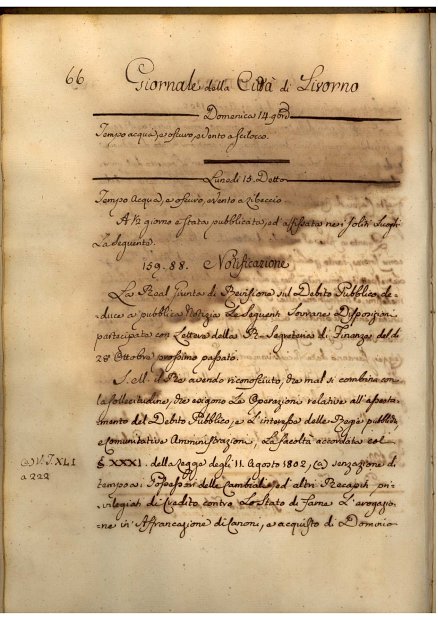 66
Giornale della Città di Livorno
Domenica 14. 9bre
Tempo acqua, e oscuro, e Vento a Scilocco.
Lunedì 15. Detto
Tempo Acqua, e oscuro, e Vento a Libeccio
A ½ giorno è stata pubblicata, ed affissata nei soliti Luoghi
La Seguente.
159. 88. Notificazione
La Real Giunta di Revisione sul Debito Pubblico de-
duce a pubblica Notizia Le Seguenti Sovrane Disposizioni
partecipate con Lettera della R. Segreteria di Finanze del dì
28 Ottobre prossimo passato.
S. M. il Re avendo riconosciuto, che mal si combina con
la sollecitudine, che esigono Le Operazioni relative all'assesta-
mento del Debito Pubblico, e L'interesse delle Regie pubbliche
e Comunitative Amministrazioni, La facoltà accordata col
§ XXXI. della Legge degli 11. Agosto 1802, (a) senza fine di
tempo a' Possessori delle Cambiali, ed altri Recapiti pri-
vilegiati di Credito contro Lo Stato di farne L'erogazio-
ne in Affrancazione di Canoni, e acquisto di Dominio
(a) V. T. XLI
a 222